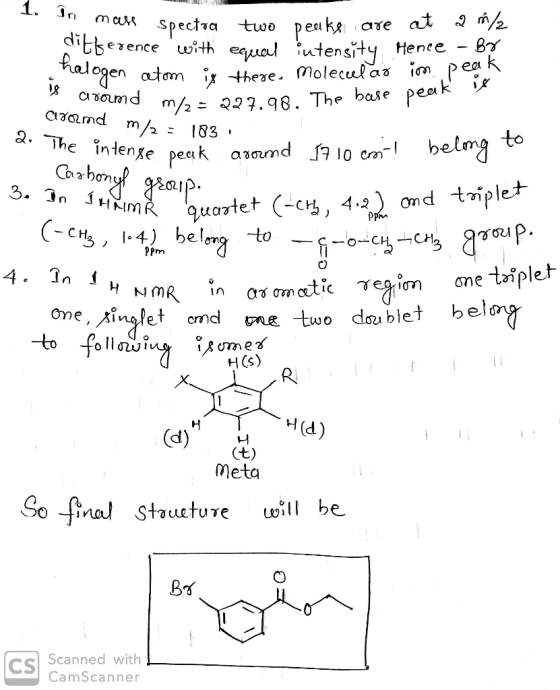 1. In mass spectra two peaks are at 2 m/z
difference with equal intensity Hence - Br
halogen atom is there. Molecular ion peak
is around m/z = 227.98. The base peak is
around m/z = 183.
2. The intense peak around 1710 cm-1 belong to
Carbonyl group.
3. In 1HNMR quartet (-CH2, 4.2) ppm and triplet
(-CH3, 1.4) ppm belong to -C-O-CH2-CH3 group.
O
4. In 1H NMR in aromatic region one triplet
one, singlet and two doublet belong
to following isomer
H(s)
X R
H H(d)
(d) H
(t)
Meta
So final structure will be
Br O
O
CS Scanned with
CamScanner